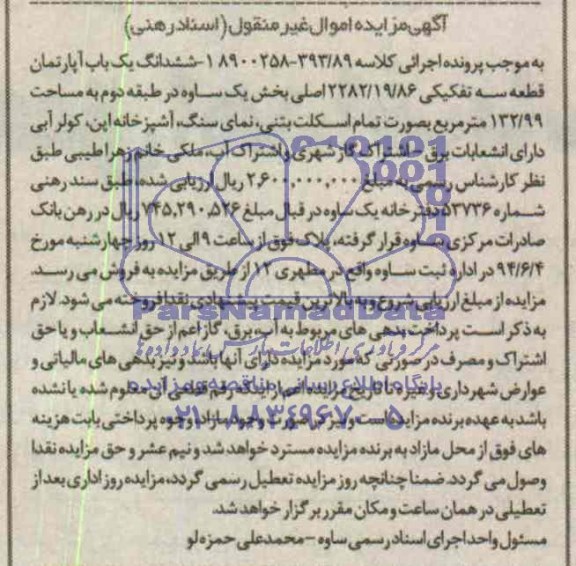 آگهی مزایده اموال غیر منقول (اسناد رهنی)
به موجب پرونده اجرائی کلاسه ۳۹۳/۸۹-۸۹۰۰۲۵۸ ۱-ششدانگ یک باب آپارتمان
قطعه سه تفکیکی ۲۲۸۲/۱۹/۸۶ اصلی بخش یک ساوه در طبقه دوم به مساحت
۱۳۲/۹۹ متر مربع بصورت تمام اسکلت بتنی، نمای سنگ، آشپزخانه اپن، کولر آبی
دارای انشعابات برق - اشتراک گاز شهری و اشتراک آب، ملکی خانم زهرا طیبی طبق
نظر کارشناس رسمی به مبلغ ۲,۶۰۰,۰۰۰,۰۰۰ ریال ارزیابی شده، طبق سند رهنی
شماره ۵۳۷۳۶ دفترخانه یک ساوه در قبال مبلغ ۷۴۵,۲۹۰,۵۲۶ ریال در رهن بانک
صادرات مرکزی ساوه قرار گرفته، پلاک فوق از ساعت ۹ الی ۱۲ روز چهارشنبه مورخ
۹۴/۶/۴ در اداره ثبت ساوه واقع در مطهری ۱۲ از طریق مزایده به فروش می رسد.
مزایده از مبلغ ارزیابی شروع و به بالاترین قیمت پیشنهادی نقدا فروخته می شود. لازم
به ذکر است پرداخت بدهی های مربوط به آب، برق، گاز اعم از حق انشعاب و یا حق
اشتراک و مصرف در صورتی که مورد مزایده دارای آنها باشد و نیز بدهی های مالیاتی و
عوارض شهرداری و غیره تا تاریخ مزایده اعم از اینکه رقم قطعی آن معلوم شده یا نشده
باشد به عهده برنده مزایده است و نیز در صورت وجود مازاد وجوه پرداختی بابت هزینه
های فوق از محل مازاد به برنده مزایده مسترد خواهد شد و نیم عشر و حق مزایده نقدا
وصول می گردد. ضمنا چنانچه روز مزایده تعطیل رسمی گردد، مزایده روز اداری بعد از
تعطیلی در همان ساعت و مکان مقرر برگزار خواهد شد.
مسئول واحد اجرای اسناد رسمی ساوه - محمدعلی حمزه لو
ParsNamadData
مرکز فرآوری اطلاعات پارس نماد داده ها
پایگاه اطلاع رسانی مناقصه و مزایده
۰۲۱-۸۸۳۴۹۶۷۰-۵